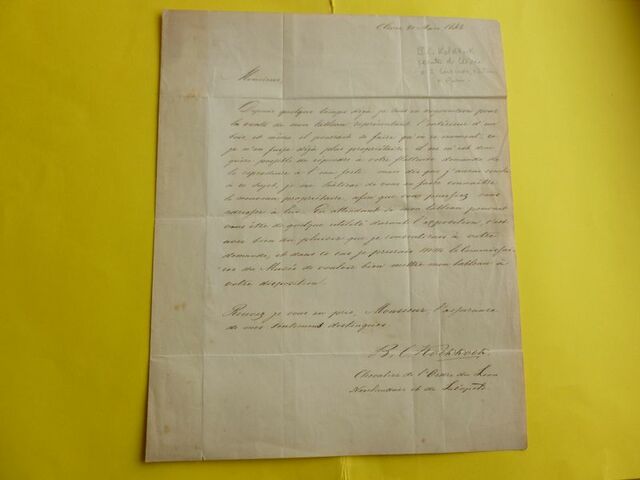 Monsieur,
Depuis quelque temps déjà je suis en négociation pour
la vente de mon tableau représentant l'intérieur d'un
bois, et même il pourrait se faire qu'en ce moment, ce
je n'en fusse déjà plus propriétaire. il ne m'est donc
guère possible de répondre à votre flatteuse demande de
le reproduire à l'eau forte. mais dès que j'aurai
à ce sujet, je me hâterai de vous en faire connaître
le nouveau propriétaire, afin que vous puissiez vous
adresser à lui. En attendant si mon tableau pouvait
vous être de quelque utilité durant l'exposition, c'est
avec bien du plaisir que je consentirais à votre
demande, et dans ce cas je prierais
du Musée de vouloir bien mettre mon tableau à
votre disposition.
Recevez je vous en prie, Monsieur, l'assurance
de mes sentiments distingués
B. C. Koekkoek.
Chevalier de l'Ordre du Lion
Néerlandais et de Léopold